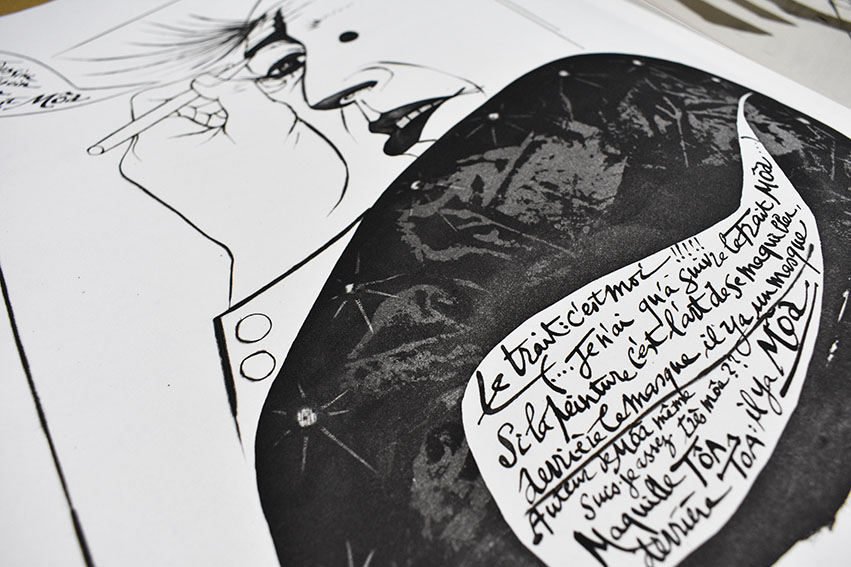 Môa
Le trait : c'est moi !!!!!
(.... Je n'ai qu'à suivre le trait Môa...
Si la peinture c'est l'art de se maquiller,
derrière le masque il y a un masque
Auteur de Môa même
suis-je assez très môa ??
Maquille TÔA
derrière TOA : il y a MÔA